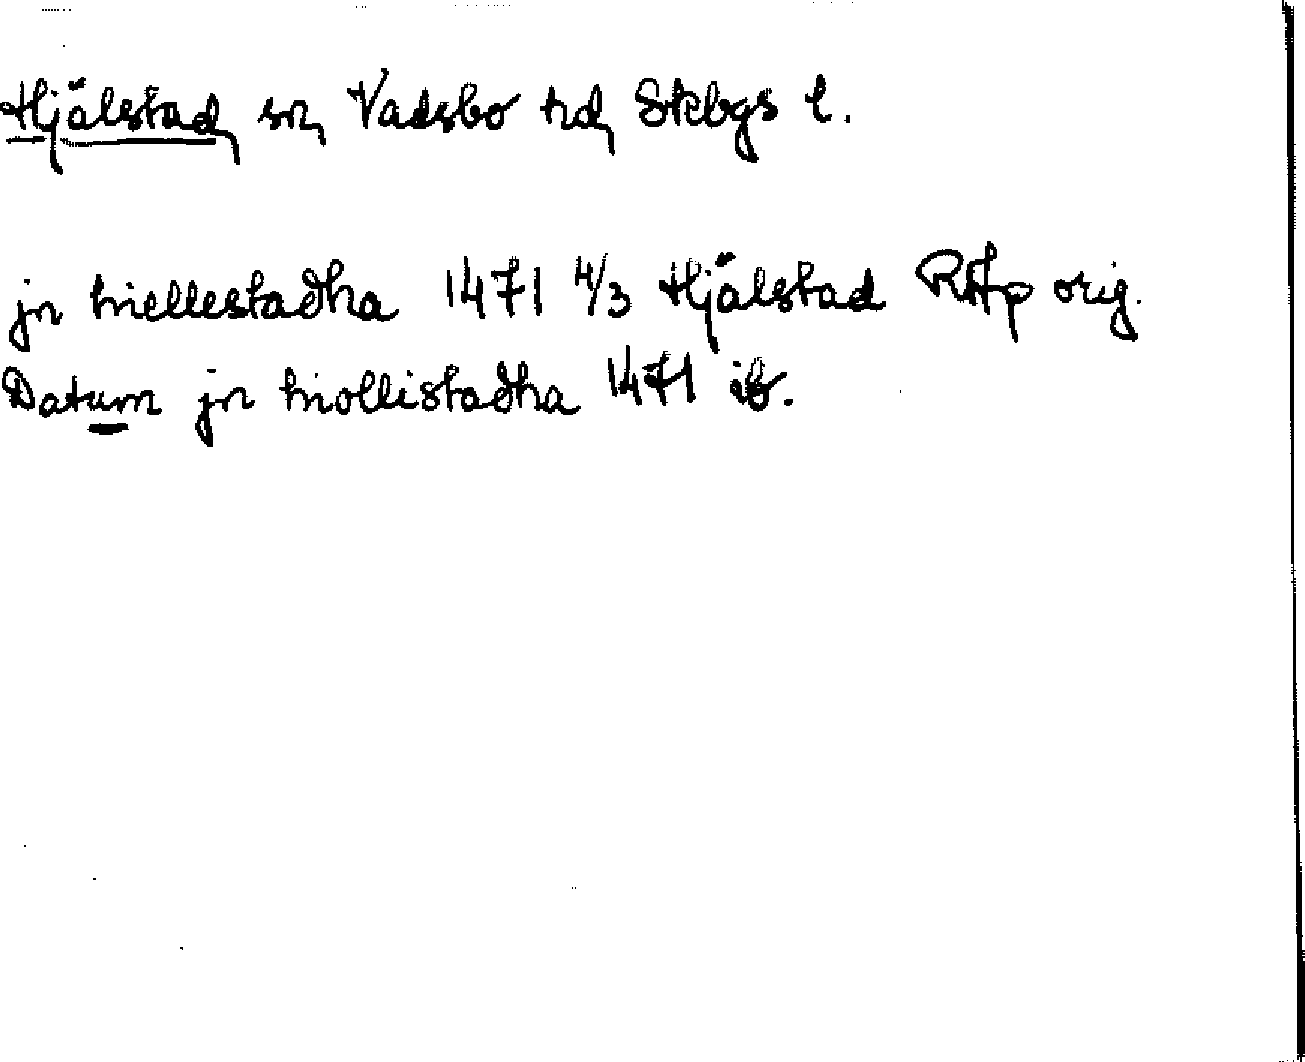 Hjälstad, sn, Vadsbo hd, Skbgs l.
jn hiellestadha 1471 4/3 Hjälstad RAp orig.
Datum jn hiollistadha 1471 ib.